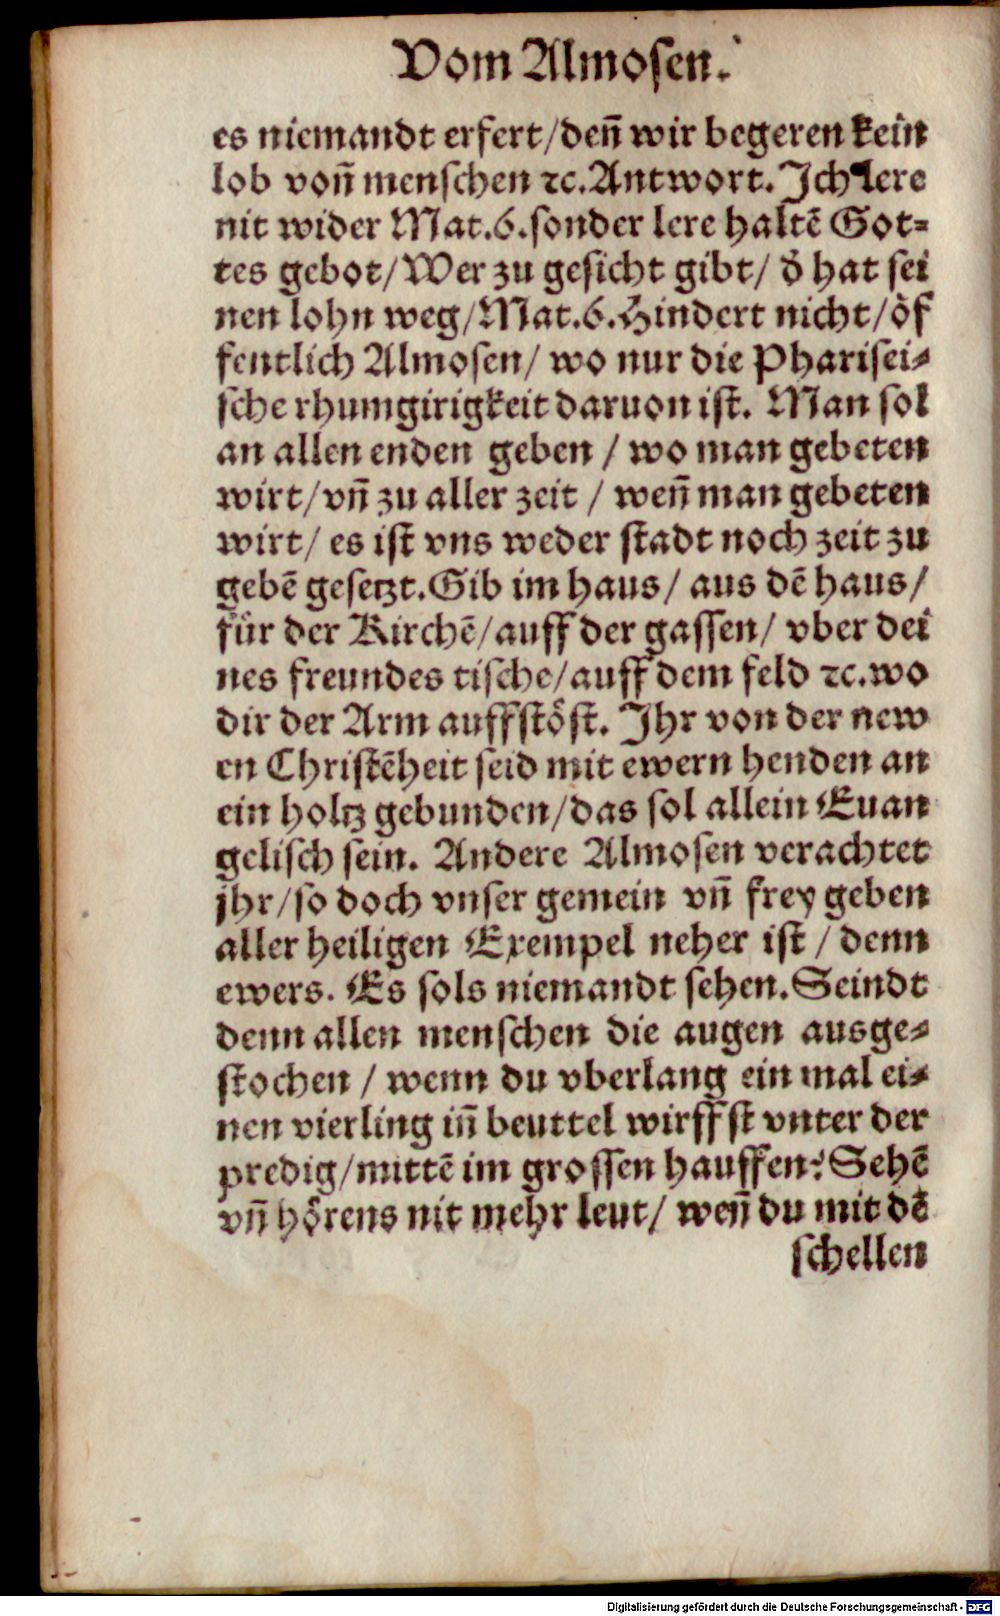 Vom Almosen.
es niemandt erfert/denñ wir begeren kein
lob vonñ menschen ꝛc. Antwort. Ich lere
nit wider Mat.6. sonder lere haltẽ Got⸗
tes gebot/Wer zu gesicht gibt/ d̕ hat sei
nen lohn weg/Mat.6. Hindert nicht/öf
fentlich Almosen/ wo nur die Pharisei⸗
sche rhumgirigkeit daruon ist. Man sol
an allen enden geben / wo man gebeten
wirt/vñ zu aller zeit / weñ man gebeten
wirt/ es ist vns weder stadt noch zeit zu
gebẽ gesetzt. Gib im haus/ aus dẽ haus/
für der Kirchẽ/auff der gassen/ vber dei
nes freundes tische/auff dem feld ꝛc. wo
dir der Arm auffstöst. Ihr von der new
en Christẽheit seid mit ewern henden an
ein holtz gebunden/das sol allein Euan
gelisch sein. Andere Almosen verachtet
jhr/so doch vnser gemein vñ frey geben
aller heiligen Exempel neher ist / denn
ewers. Es sols niemandt sehen. Seindt
denn allen menschen die augen ausge⸗
stochen / wenn du vberlang ein mal ei⸗
nen vierling iñ beuttel wirffst vnter der
predig/mittẽ im grossen hauffen? Sehẽ
vñ hörens nit mehr leut/ weñ du mit dẽ
schellen
Digitalisierung gefördert durch die Deutsche Forschungsgemeinschaft - DFG